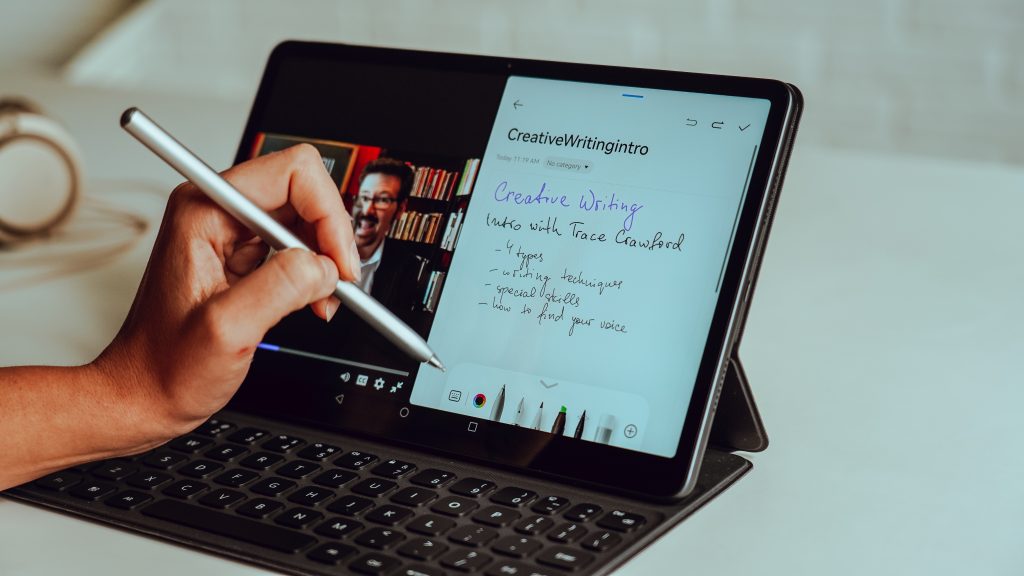 CreativeWritingintro
Today 11:19 AM No category
Creative Writing
Intro with Trace Crawford
- 4 types
- writing techniques
- special skills
- how to find your voice
CC